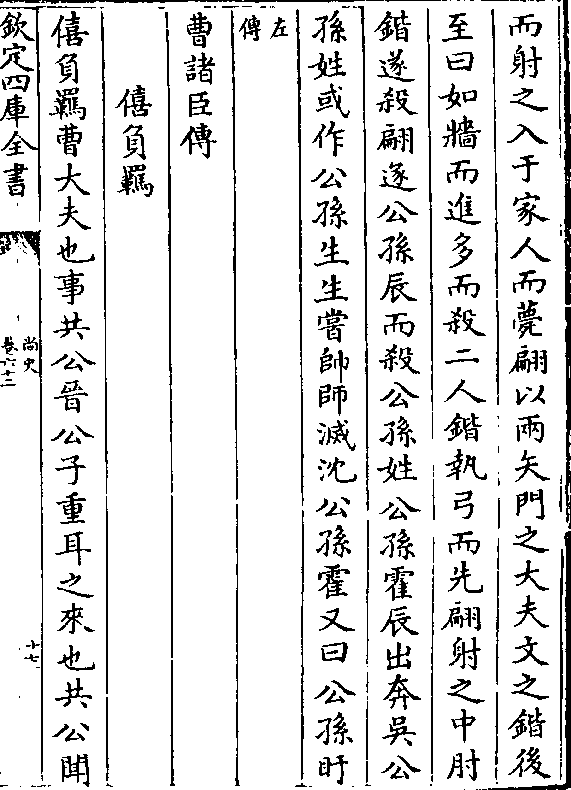 而射之入于家人而薨翩以兩矢門之大夫文之鍇後
至曰如牆而進多而殺二人鍇執弓而先翩射之中肘
鍇遂殺翩遂公孫辰而殺公孫姓公孫霍辰出奔吳公
孫姓或作公孫生生嘗帥師滅沈公孫霍又曰公孫盱
左傳
曹諸臣傳
僖負羈
僖負羈曹大夫也事共公晉公子重耳之來也共公聞
欽定四庫全書
尚史
卷六十二
十七